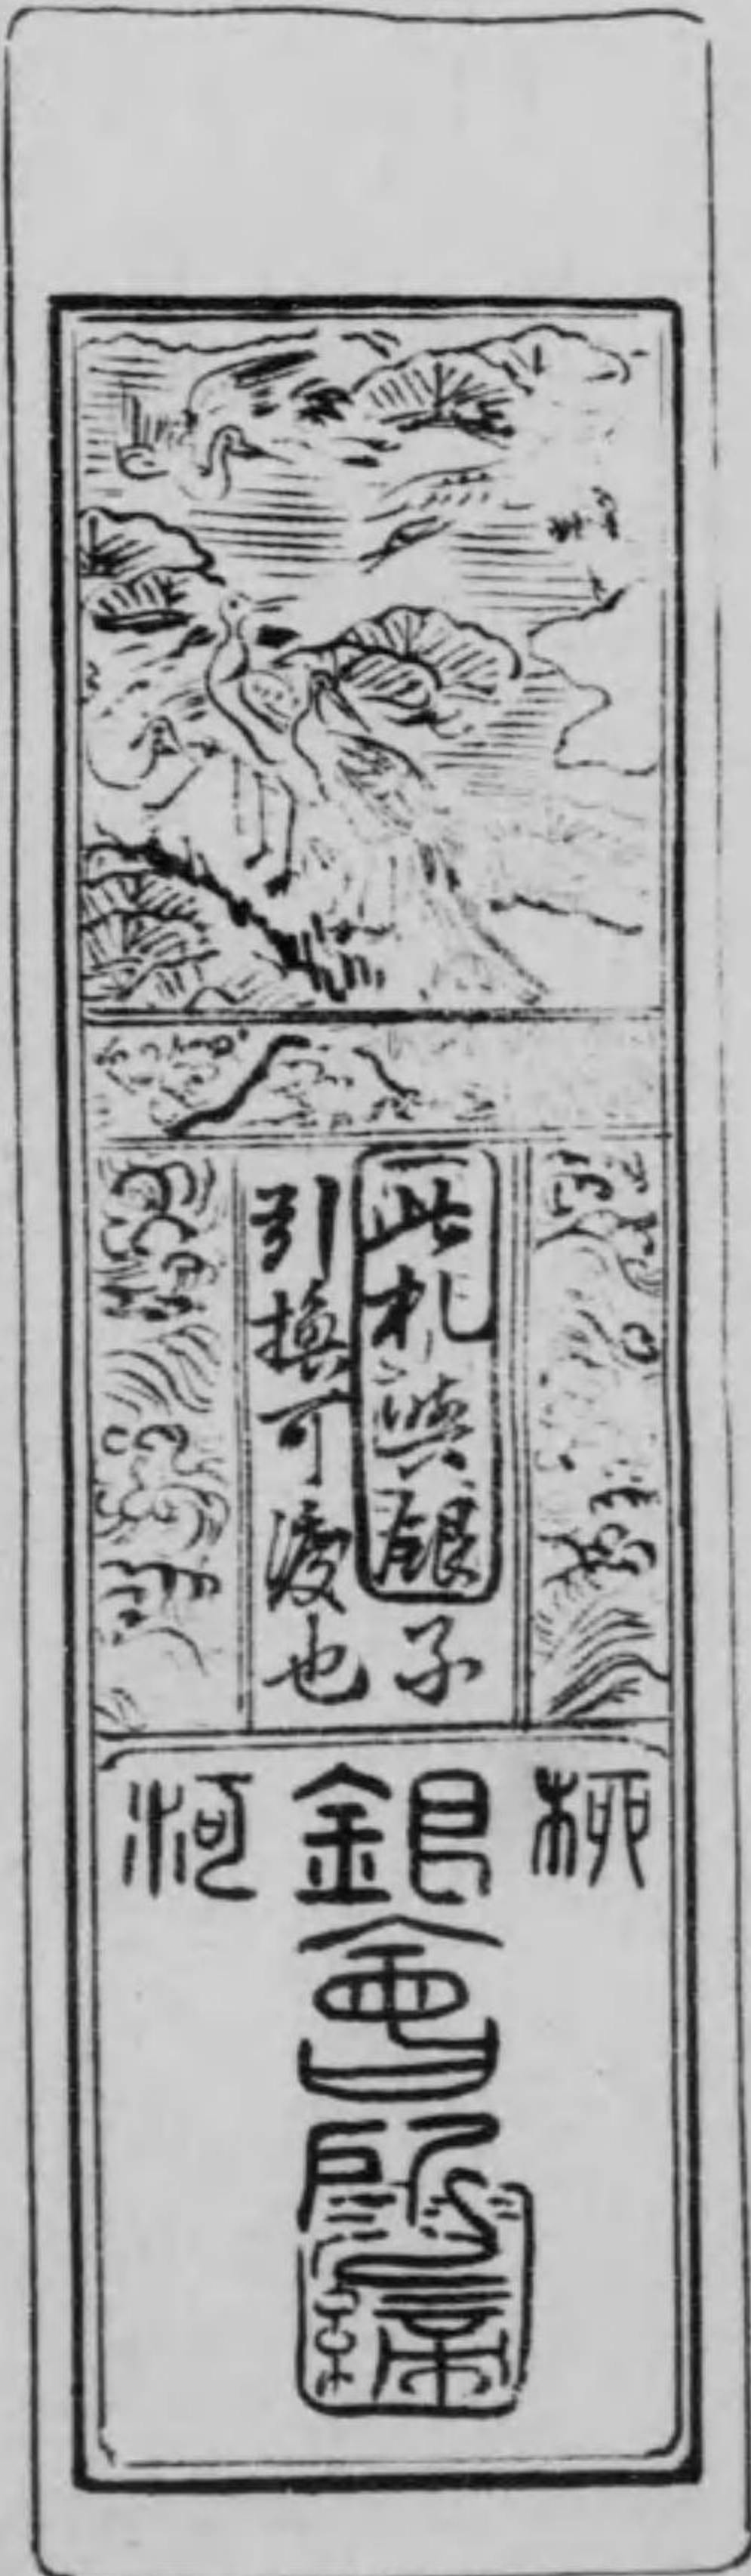 此札與銀子
引換可渡也
柳
銀會所
河